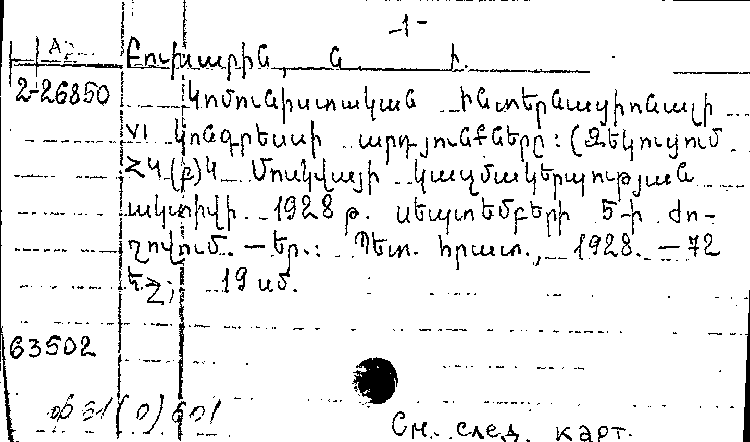 -1-
Ар
Բուխարին, Ն. Ի.
2-26850 Կոմունիստական Ինտերնացիոնալի
VI կոնգրեսսի արդյունքները: (Զեկուցում
ՀԿ(բ)Կ Մոսկվայի կազմակերպության
ակտիվի 1928 թ. սեպտեմբերի 5-ի ժո-
ղովում. — Եր.: Պետ. հրատ., 1928. — 72
եջ; 19 սմ.
63502
См. след. карт.